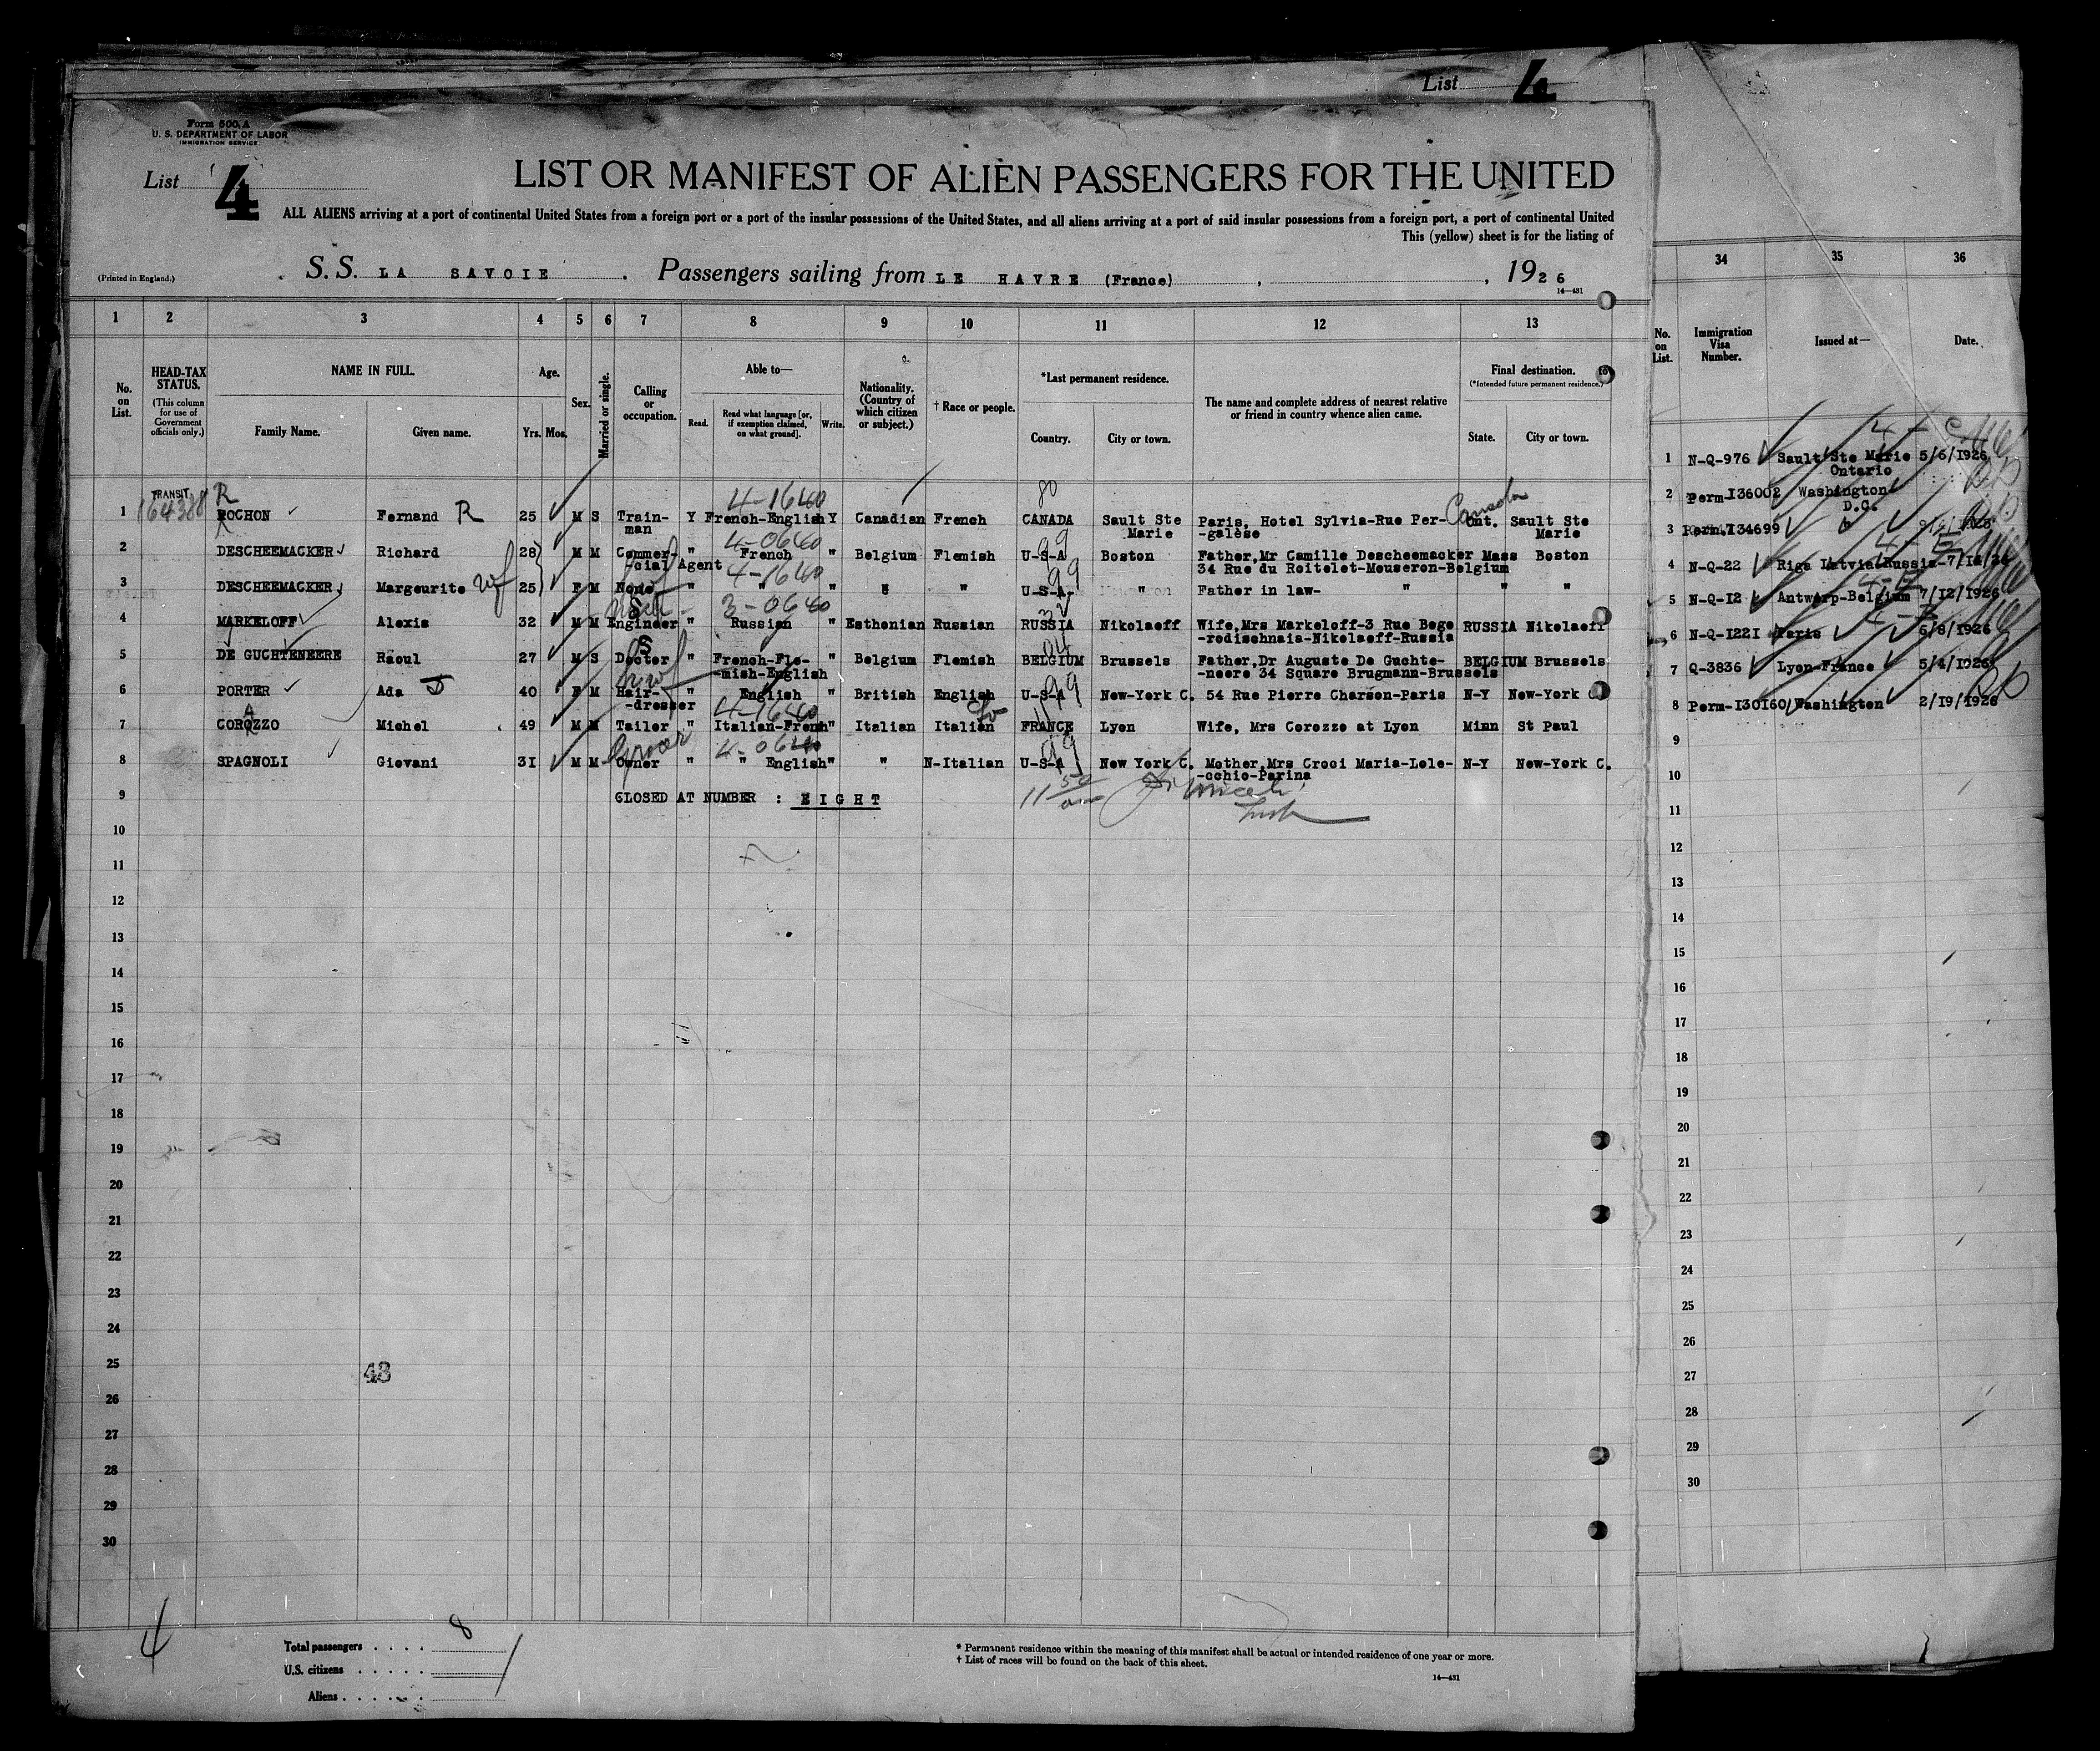 List 4
Form 500 A
U. S. DEPARTMENT OF LABOR
IMMIGRATION SERVICE
List 4
LIST OR MANIFEST OF ALIEN PASSENGERS FOR THE UNITED
ALL ALIENS arriving at a port of continental United States from a foreign port or a port of the insular possessions of the United States, and all aliens arriving at a port of said insular possessions from a foreign port, a port of continental United
This (yellow) sheet is for the listing of
(Printed in England.)
S. S. LA SAVOIE Passengers sailing from LE HAVRE (France) , , 1926
14—431
1 2 3 4 5 6 7 8 9 10 11 12 13
No. on List.
HEAD-TAX STATUS. (This column for use of Government officials only.)
NAME IN FULL.
Family Name. Given name.
Age.
Yrs. Mos.
Sex.
Married or single.
Calling or occupation.
Able to—
Read. Read what language [or, if exemption claimed, on what ground]. Write.
Nationality. (Country of which citizen or subject.)
† Race or people.
*Last permanent residence.
Country. City or town.
The name and complete address of nearest relative or friend in country whence alien came.
Final destination.
(*Intended future permanent residence.)
State. City or town.
TRANSIT R 4-1640 80
1 164380 ROCHON Fernand R 25 M S Train- Y French-English Y Canadian French CANADA Sault Ste Paris, Hotel Sylvia-Rue Per- Ont. Sault Ste
man Marie -galèse Marie
4-0640 99
2 DESCHEEMACKER Richard 28 M M Commer- " French " Belgium Flemish U-S-A Boston Father,Mr Camille Descheemacker Mass Boston
-cial Agent 34 Rue du Roitelet-Mouseron-Belgium
4-1640 99
3 DESCHEEMACKER Margeurite wf 25 F M None " " " " " U-S-A- " Father in law- " " "
3-0640 32
4 MARKELOFF Alexis 32 M M Engineer " Russian " Esthonian Russian RUSSIA Nikolaeff Wife,Mrs Markeloff-3 Rue Bego RUSSIA Nikolaeff
-rodischnaia-Nikolaeff-Russia
S 04
5 DE GUCHTENEERE Raoul 27 M S Doctor " French-Fle- " Belgium Flemish BELGIUM Brussels Father,Dr Auguste De Guchte- BELGIUM Brussels
-mish-English -neere 34 Square Brugmann-Brussels
99
6 PORTER Ada J 40 F M Hair- " English " British English U-S-A New-York C. 54 Rue Pierre Charson-Paris N-Y New-York C
-dresser
A 4-1640
7 COROZZO Michel 49 M M Tailor " Italian-French " Italian Italian FRANCE Lyon Wife, Mrs Corozzo at Lyon Minn St Paul
4-0640 99
8 SPAGNOLI Giovani 31 M M Owner " " English " " N-Italian U-S-A New York C. Mother,Mrs Croci Maria-Lole- N-Y New-York C.
-cchio-Parina
9 CLOSED AT NUMBER : EIGHT
10
11
12
13
14
15
16
17
18
19
20
21
22
23
24
25
48
26
27
28
29
30
4
Total passengers . . . . 8
U.S. citizens . . . . .
Aliens . . . . . .
* Permanent residence within the meaning of this manifest shall be actual or intended residence of one year or more.
† List of races will be found on the back of this sheet.
14—431
34 35 36
No. on List.
Immigration Visa Number.
Issued at—
Date.
1 N-Q-976 Sault Ste Marie 5/6/1926
Ontario
2 Perm-136002 Washington
D.C.
3 Perm.134699
4 N-Q-22 Riga Latvia-Russia-
5 N-Q-12 Antwerp-Belgium 7/12/1926
6 N-Q-1221 Paris 6/8/1926
7 Q-3836 Lyon-France 5/4/1926
8 Perm-130160 Washington 2/19/1926
9
10
11
12
13
14
15
16
17
18
19
20
21
22
23
24
25
26
27
28
29
30